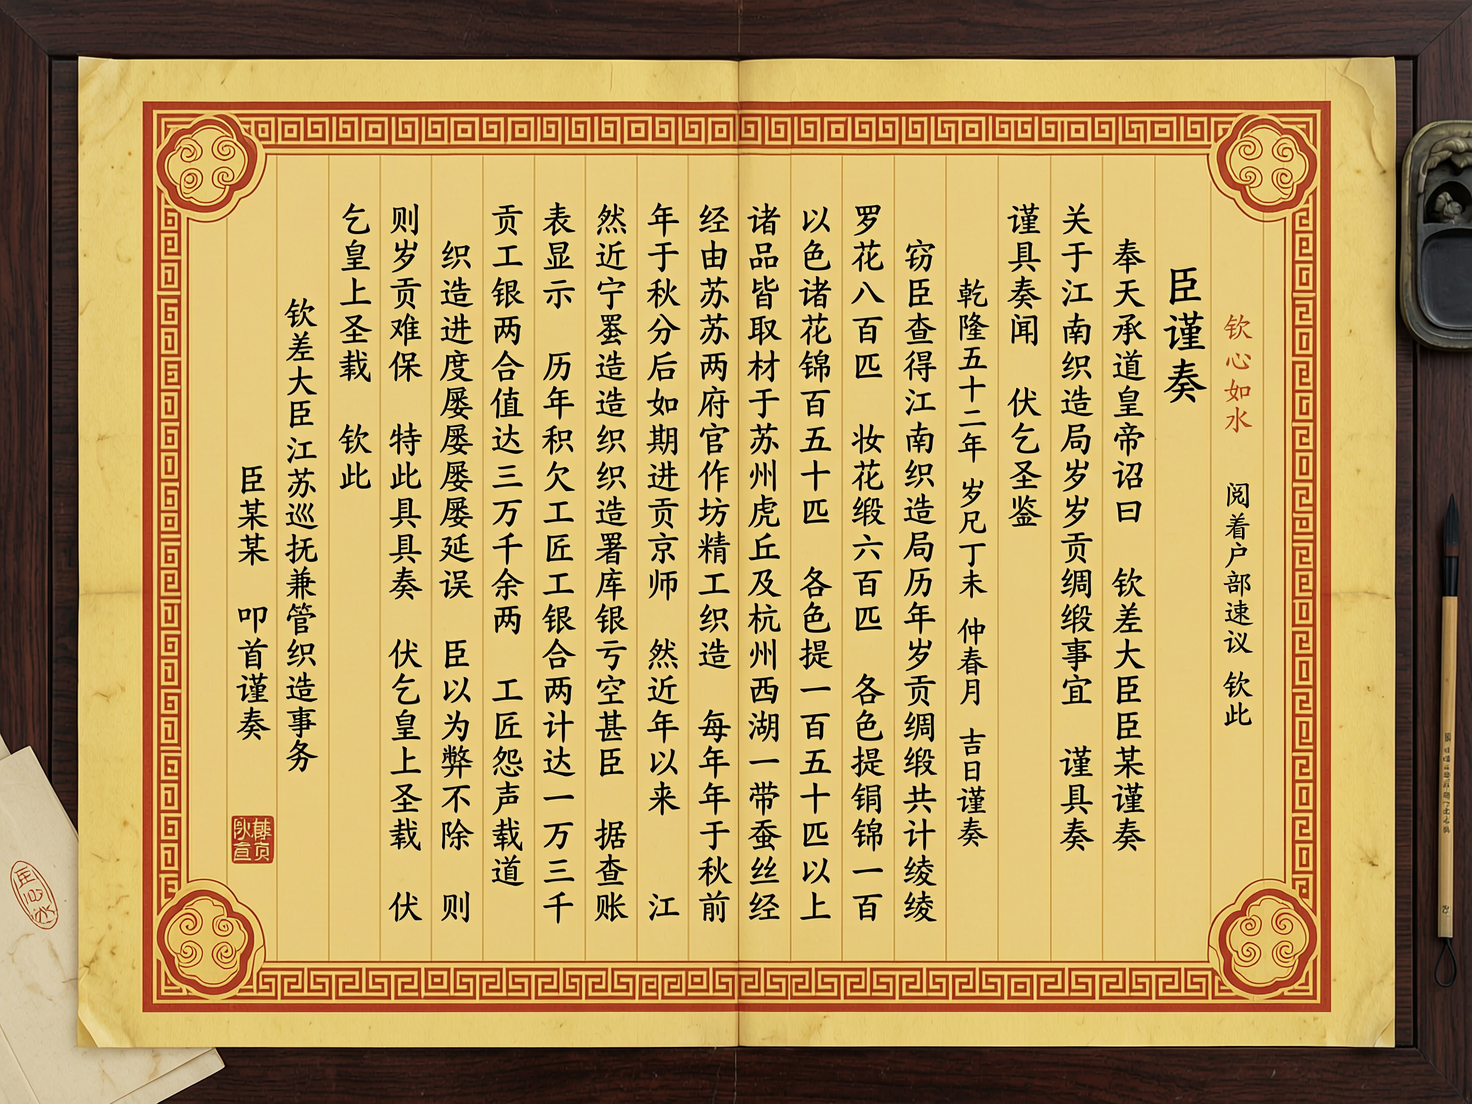 钦心如水 阅着户部速议 钦此
臣谨奏
奉天承道皇帝诏曰 钦差大臣臣某谨奏
关于江南织造局岁岁贡绸缎事宜 谨具奏
谨具奏闻 伏乞圣鉴
乾隆五十二年 岁尺丁未 仲春月 吉日谨奏
窃臣查得江南织造局历年岁贡绸缎共计绫绫
罗花八百匹 妆花缎六百匹 各色提铜锦一百
以色诸花锦百五十匹 各色提一百五十匹以上
诸品皆取材于苏州虎丘及杭州西湖一带蚕丝经
经由苏苏两府官作坊精工织造 每年年于秋前
年于秋分后如期进贡京师 然近年以来 江
然近宁罢造造织织造署库银亏空甚臣 据查账
表显示 历年积欠工匠工银合两计达一万三千
贡工银两合值达三万千余两 工匠怨声载道
织造进度屡屡屡屡延误 臣以为弊不除 则
则岁贡难保 特此具具奏 伏乞皇上圣载 伏
乞皇上圣载 钦此
钦差大臣江苏巡抚兼管织造事务
臣某某 叩首谨奏